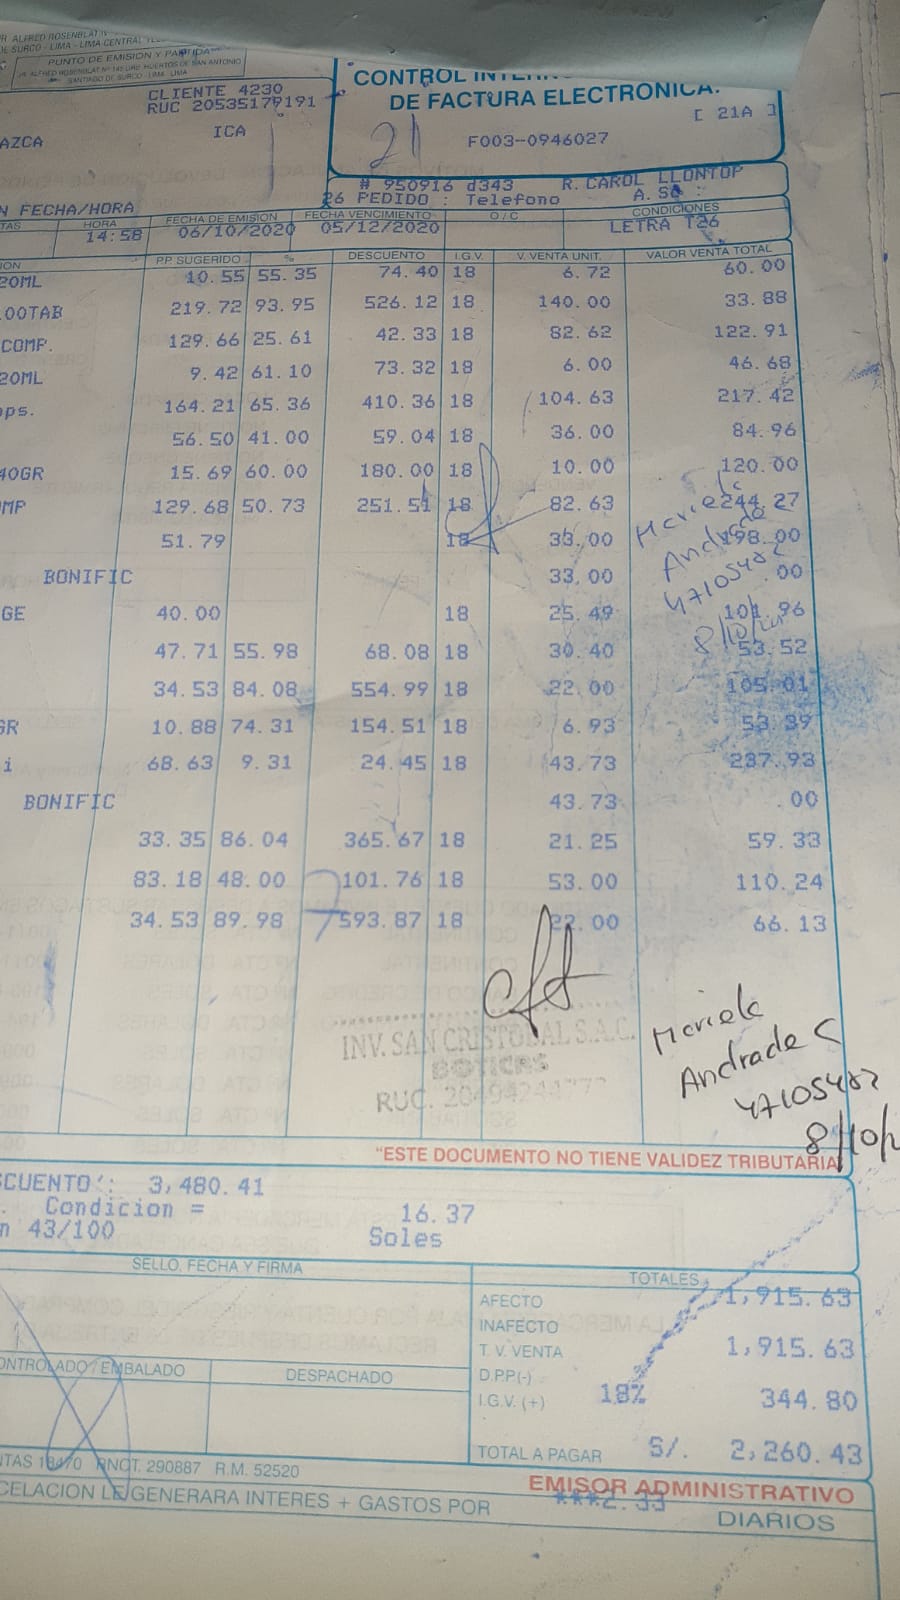 R ALFRED ROSENBLAT
DE SURCO - LIMA - LIMA CENTRAL
PUNTO DE EMISION Y PARTIDA
JR. ALFRED ROSENBLAT Nº 145 URB. HUERTOS DE SAN ANTONIO
SANTIAGO DE SURCO - LIMA - LIMA
CLIENTE 4230
RUC 20535179191
AZCA ICA
CONTROL INTERN
DE FACTURA ELECTRONICA.
[ 21A ]
21
F003-0946027
# 950916 d343 R. CAROL LLONTOP
26 PEDIDO : Telefono A. SC :
N FECHA/HORA
TAS HORA FECHA DE EMISION FECHA VENCIMIENTO O/C CONDICIONES
14:58 06/10/2020 05/12/2020 LETRA T26
ION P.P. SUGERIDO % DESCUENTO I.G.V. V. VENTA UNIT. VALOR VENTA TOTAL
20ML 10.55 55.35 74.40 18 6.72 60.00
00TAB 219.72 93.95 526.12 18 140.00 33.88
COMP. 129.66 25.61 42.33 18 82.62 122.91
20ML 9.42 61.10 73.32 18 6.00 46.68
ps. 164.21 65.36 410.36 18 104.63 217.42
56.50 41.00 59.04 18 36.00 84.96
40GR 15.69 60.00 180.00 18 10.00 120.00
MP 129.68 50.73 251.51 18 82.63 244.27
51.79 18 33.00 198.00
BONIFIC 33.00 .00
GE 40.00 18 25.49 101.96
47.71 55.98 68.08 18 30.40 53.52
34.53 84.08 554.99 18 22.00 105.01
GR 10.88 74.31 154.51 18 6.93 53.39
i 68.63 9.31 24.45 18 43.73 237.93
BONIFIC 43.73 .00
33.35 86.04 365.67 18 21.25 59.33
83.18 48.00 101.76 18 53.00 110.24
34.53 89.98 593.87 18 22.00 66.13
Mariela
Andrade
47105482
8/10/
INV. SAN CRISTOBAL S.A.C.
BOTICAS
RUC. 20494244773
Mariela
Andrade C
47105482
8/10/2
"ESTE DOCUMENTO NO TIENE VALIDEZ TRIBUTARIA
SCUENTO : 3,480.41
Condicion = 16.37
n 43/100 Soles
SELLO, FECHA Y FIRMA TOTALES
AFECTO 1,915.63
INAFECTO
T. V. VENTA 1,915.63
D.PP(-)
I.G.V. (+) 18% 344.80
TOTAL A PAGAR S/. 2,260.43
ONTROLADO / EMBALADO DESPACHADO
NTAS 18470 RNCT. 290887 R.M. 52520
EMISOR ADMINISTRATIVO
CELACION LE GENERARA INTERES + GASTOS POR ***2.33 DIARIOS